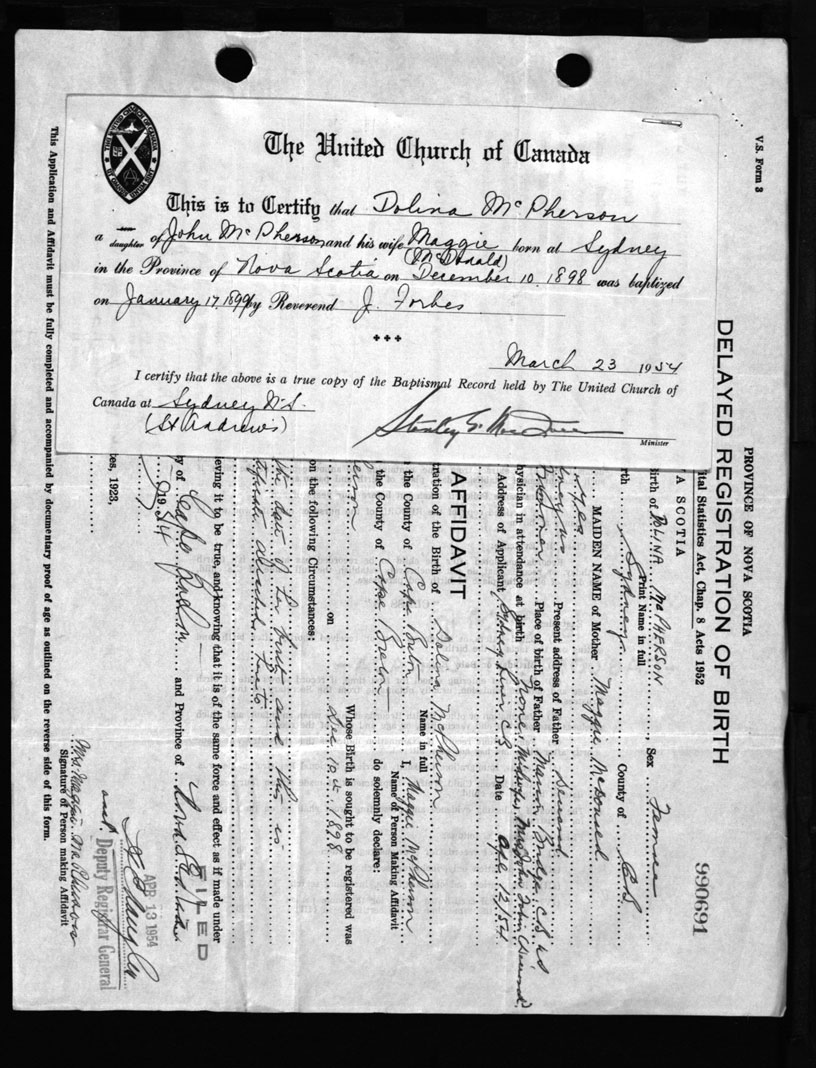 The United Church of Canada
This is to Certify that Dolina McPherson
a daughter of John McPherson and his wife Maggie born at Sydney
(McDonald)
in the Province of Nova Scotia on December 10, 1898 was baptized
on January 17, 1899 by Reverend J. Forbes
March 23 1954
I certify that the above is a true copy of the Baptismal Record held by The United Church of
Canada at Sydney N.S.
(St Andrews)
Stanley
Minister
V.S. Form 3
PROVINCE OF NOVA SCOTIA
DELAYED REGISTRATION OF BIRTH
990691
ital Statistics Act, Chap. 8 Acts 1952
A SCOTIA
Birth of DOLINA McPHERSON Sex Female
Print Name in full
rth Sydney County of C.B.
MAIDEN NAME of Mother Maggie McDonald
Present address of Father Deceased
Place of birth of Father Marion Bridge C.B. NS
ysician in attendance at birth None. Midwife, Mrs John
Address of Applicant Sydney C.B. Date Apl. 12/54
AFFIDAVIT
ration of the Birth of Dolina McPherson
Name in full
the County of Cape Breton I, Maggie McPherson
Name of Person Making Affidavit
the County of Cape Breton do solemnly declare:
Whose Birth is sought to be registered was
on Dec 10th 1898
on the following Circumstances:
the best of her and this is
attached
eving it to be true, and knowing that it is of the same force and effect as if made under
y of Cape Breton and Province of
19 54
tes, 1923,
FILED
APR 13 1954
asst.
Deputy Registrar General
Mrs. Maggie McPherson
Signature of Person making Affidavit
This Application and Affidavit must be fully completed and accompanied by documentary proof of age as outlined on the reverse side of this form.